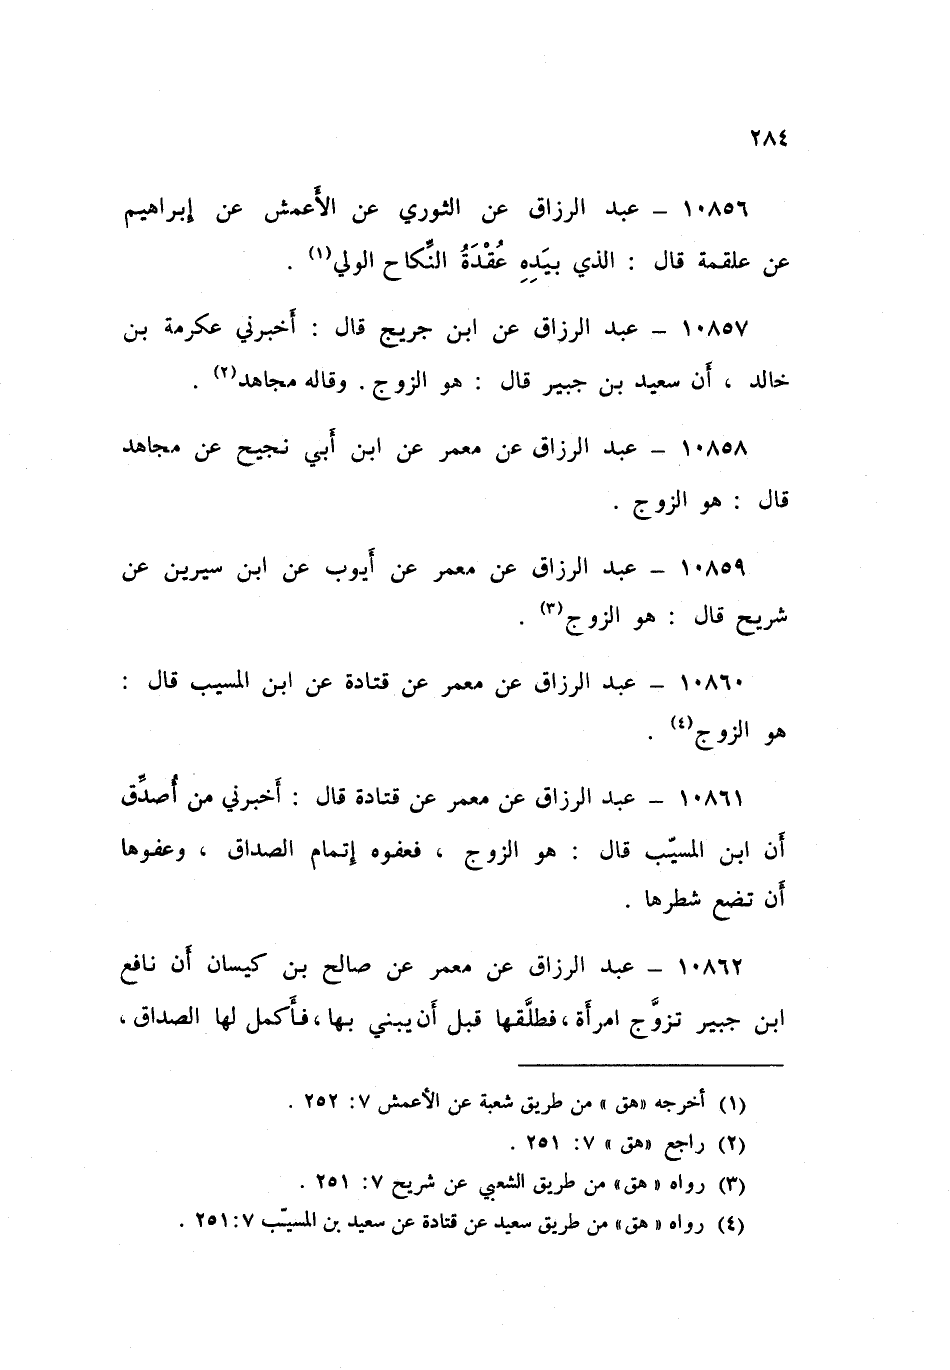 ٢٨٤
١٠٨٥٦ – عبد الرزاق عن الثوري عن الأَعمش عن إبراهيم
عن علقمة قال : الذي بيَدِهِ عُقْدَةُ النِّكاح الولي(١) .
١٠٨٥٧ – عبد الرزاق عن ابن جريج قال : أَخبرني عكرمة بن
خالد ، أَن سعيد بن جبير قال : هو الزوج . وقاله مجاهد(٢) .
١٠٨٥٨ – عبد الرزاق عن معمر عن ابن أَبي نجيح عن مجاهد
قال : هو الزوج .
١٠٨٥٩ – عبد الرزاق عن معمر عن أَيوب عن ابن سيرين عن
شريح قال : هو الزوج(٣) .
١٠٨٦٠ – عبد الرزاق عن معمر عن قتادة عن ابن المسيب قال :
هو الزوج(٤) .
١٠٨٦١ – عبد الرزاق عن معمر عن قتادة قال : أَخبرني من أُصدِّق
أَن ابن المسيّب قال : هو الزوج ، فعفوه إتمام الصداق ، وعفوها
أَن تضع شطرها .
١٠٨٦٢ – عبد الرزاق عن معمر عن صالح بن كيسان أَن نافع
ابن جبير تزوَّج امرأَة ، فطلَّقها قبل أَن يبني بها ، فأَكمل لها الصداق ،
(١) أخرجه «هق» من طريق شعبة عن الأعمش ٧: ٢٥٢ .
(٢) راجع «هق» ٧: ٢٥١ .
(٣) رواه «هق» من طريق الشعبي عن شريح ٧: ٢٥١ .
(٤) رواه «هق» من طريق سعيد عن قتادة عن سعيد بن المسيّب ٧: ٢٥١ .